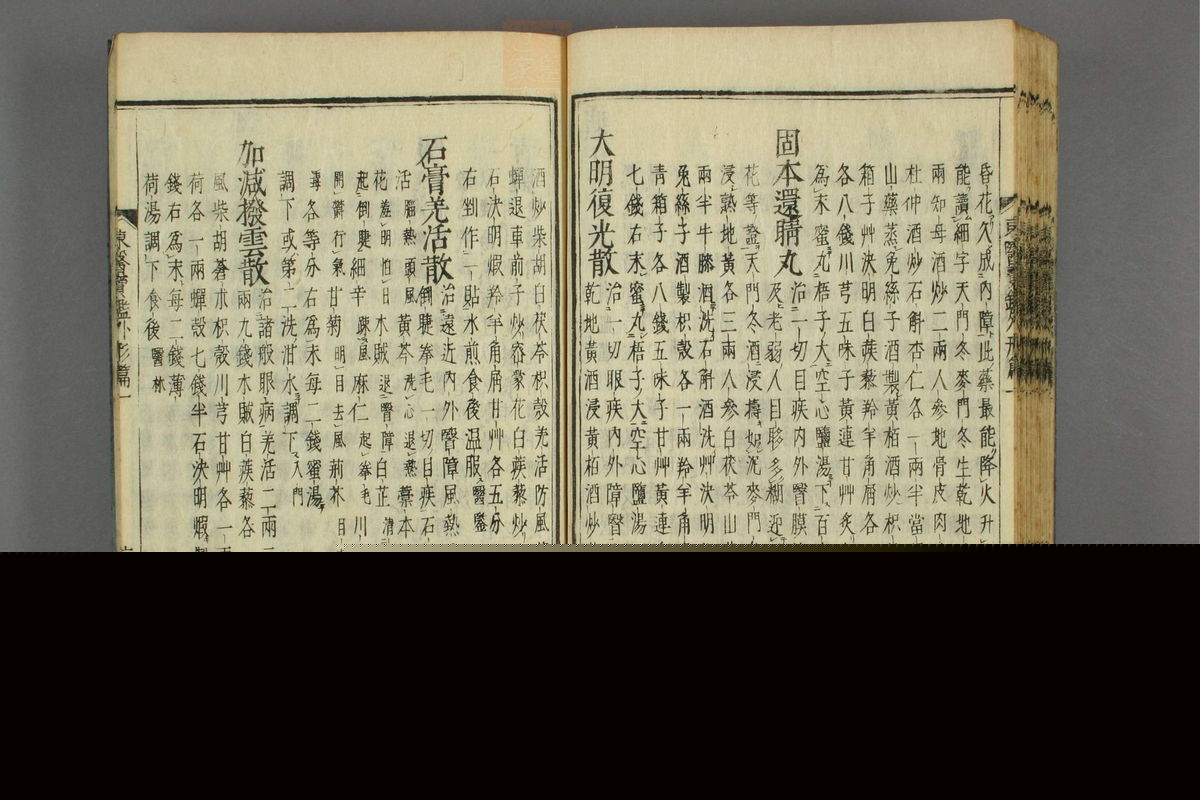 昏花久成內障此藥最能降火升
能讀細字天門冬麥門冬生乾地
兩知母酒炒二兩人參地骨皮肉
杜仲酒炒石斛杏仁各一兩半當
山藥蒸兔絲子酒製黃栢酒炒枳
箱子艸決明白蒺藜羚羊角屑各
各八錢川芎五味子黃連甘艸炙
為末蜜丸梧子大空心鹽湯下百
固本還睛丸治一切目疾內外瞖膜
及老弱人目眵多糊迎
花等證天門冬酒浸擣如泥麥門
浸熟地黃各三兩人參白茯苓山
兩半牛膝酒洗石斛酒洗艸決明
兔絲子酒製枳殼各一兩羚羊角
青箱子各八錢五味子甘艸黃連
七錢右末蜜丸梧子大空心鹽湯
大明復光散治一切眼疾內外障瞖
乾地黃酒浸黃栢酒炒
酒炒柴胡白茯苓枳殼羌活防風
蟬退車前子炒密蒙花白蒺藜炒
石決明煆羚羊角屑甘艸各五分
右剉作一貼水煎食後温服醫鑑
石膏羌活散治遠近內外瞖障風熱
倒睫拳毛一切目疾石
活腦熱頭風黃芩洗心退熱藁本
花羞明怕日木賊退瞖障白芷清
起倒睫細辛踈風麻仁起拳毛川
開鬱行氣甘菊明目去風荊芥目
毒各等分右為末每二錢蜜湯
調下或第二洗泔水調下入門
加減撥雲散治諸般眼病羌活二兩二
兩九錢木賊白蒺藜各
風柴胡蒼朮枳殼川芎甘艸各一
荷各一兩蟬殼七錢半石決明煆
錢右為末每二錢薄
荷湯調下食後醫林
東醫寶鑑外形篇一